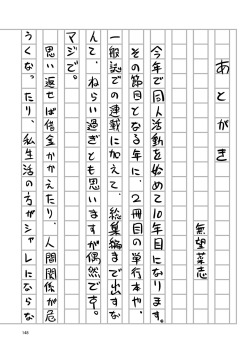 あとがき
無望菜志
今年で同人活動を始めて10年目になります。
その節目となる年に、2冊目の単行本や、
一般誌での連載に加えて、総集編まで出すな
んて、ねらい過ぎとも思いますが偶然です。
マジで。
思い返せば借金かかえたり、人間関係が危
うくなったり、私生活の方がシャレにならな
148